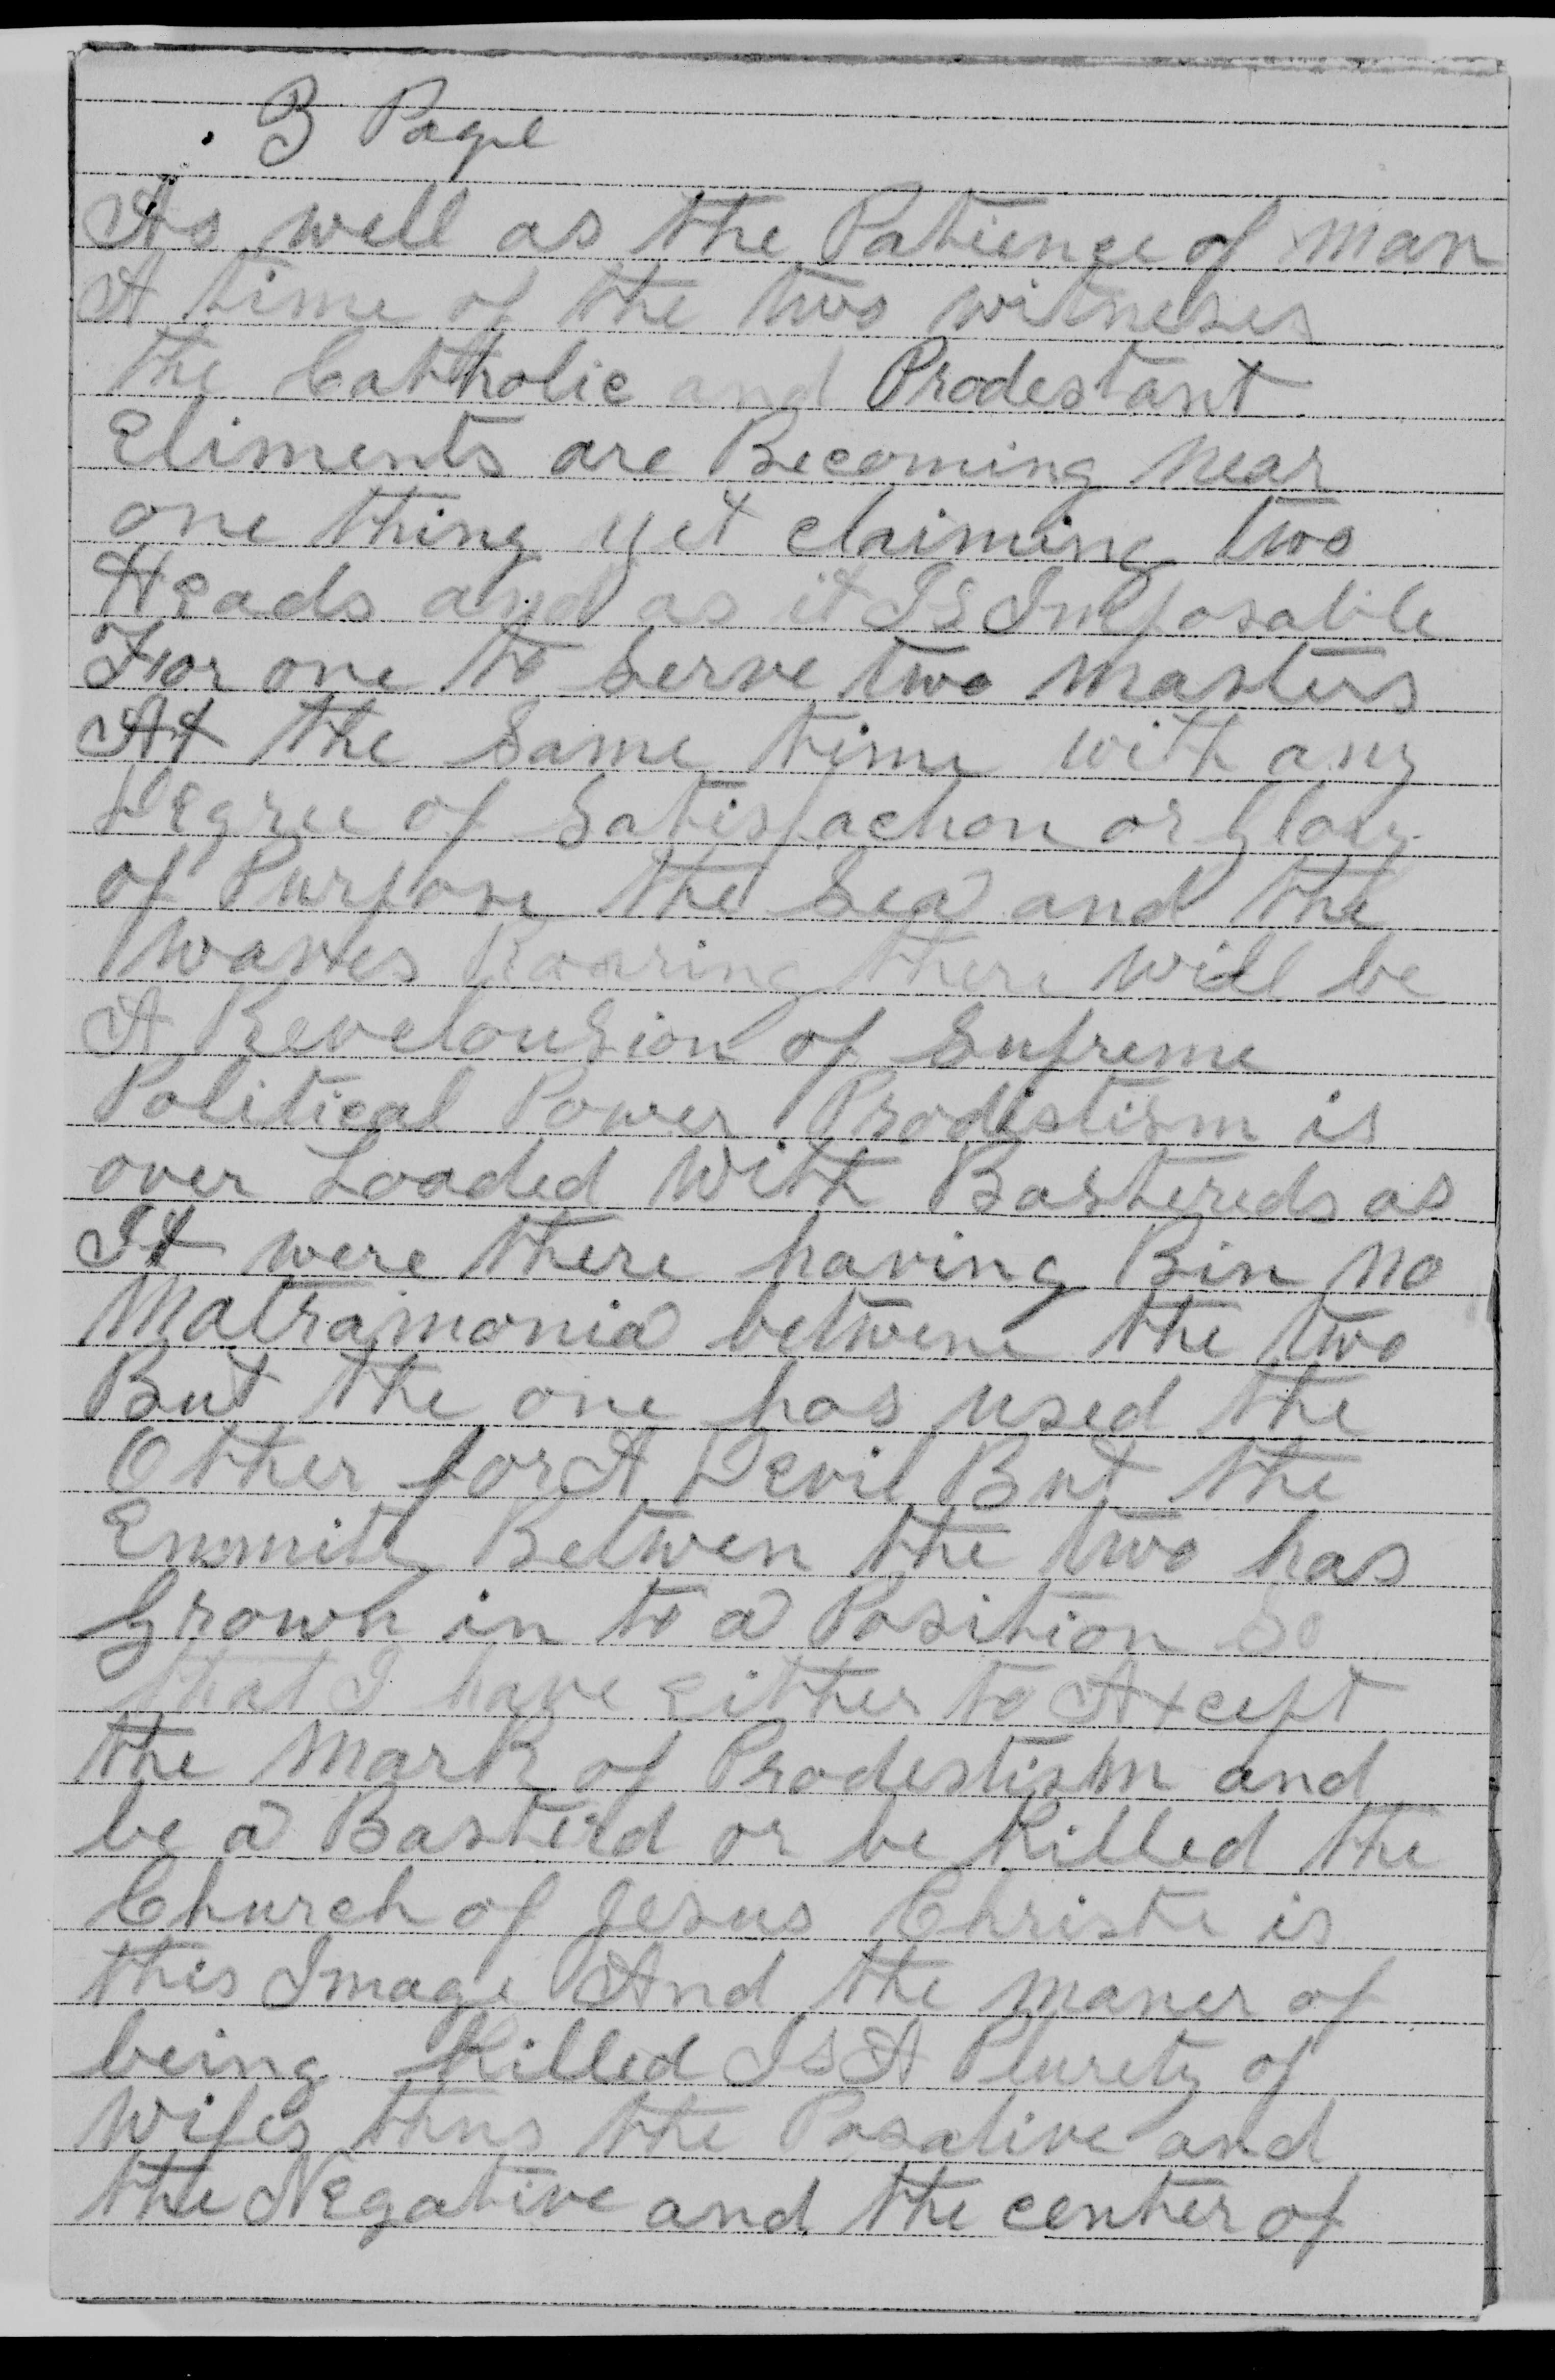 3 Page
As well as the Patience of man
A time of the two witneses
the Catholic and Prodestant
Eliments are Becoming near
one thing yet claiming two
Heads and as it Is Imposable
For one to Serve two masters
At the Same time with any
Degree of Satisfachon or Glory
of Purpose the Sea and the
waves Roaring there will be
A Revelousion of Supreme
Political Power Prodistism is
over Loaded with Bastereds as
It were there having Bin no
Matramonia betwene the two
But the one has used the
Other for A Devil But the
Enmity Betwen the two has
Grown in to a Position So
that I have Either to Axcept
the Mark of Prodestism and
be a Basterd or be Killed the
Church of Jesus Christe is
this Image And the maner of
being Killed Is A Plurety of
Wifes thus the Posative and
the Negative and the center of